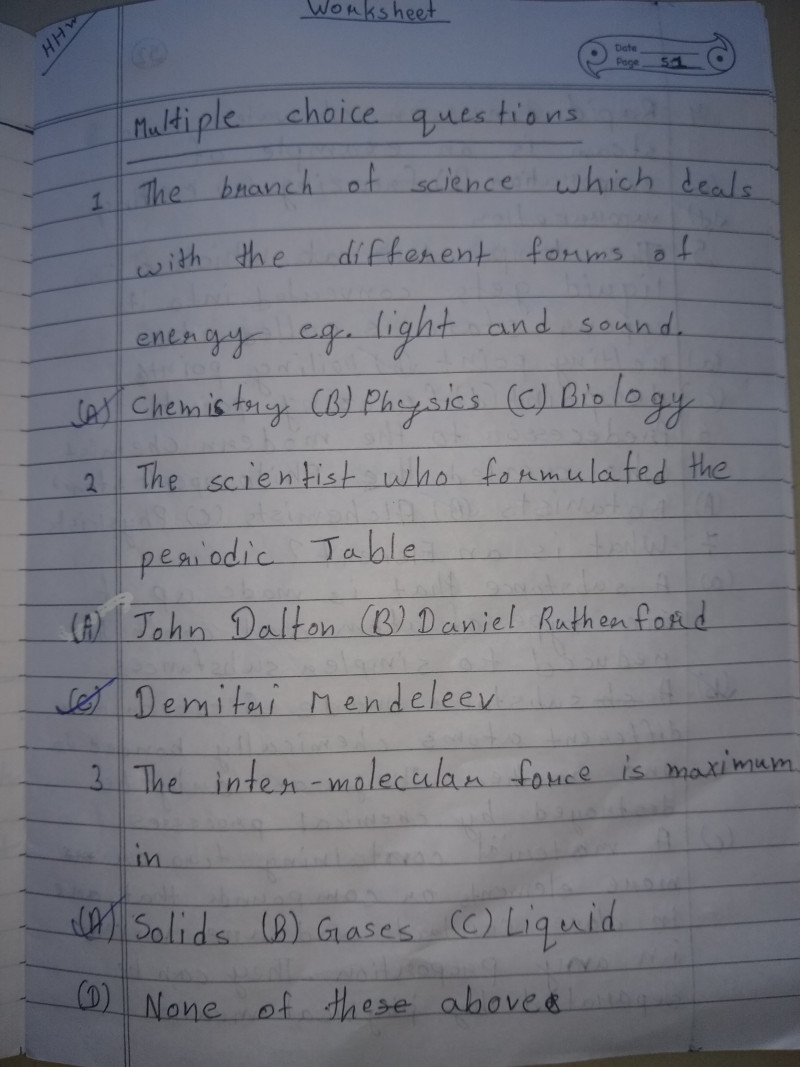 Worksheet
HHW
Date
Page 51
Multiple choice questions
1 The branch of science which deals
with the different forms of
energy eg. light and sound.
(A) Chemistry (B) Physics (C) Biology
2 The scientist who formulated the
periodic Table
(A) John Dalton (B) Daniel Rutherford
(C) Demitri Mendeleev
3 The inter-molecular force is maximum
in
(A) Solids (B) Gases (C) Liquid
(D) None of these above